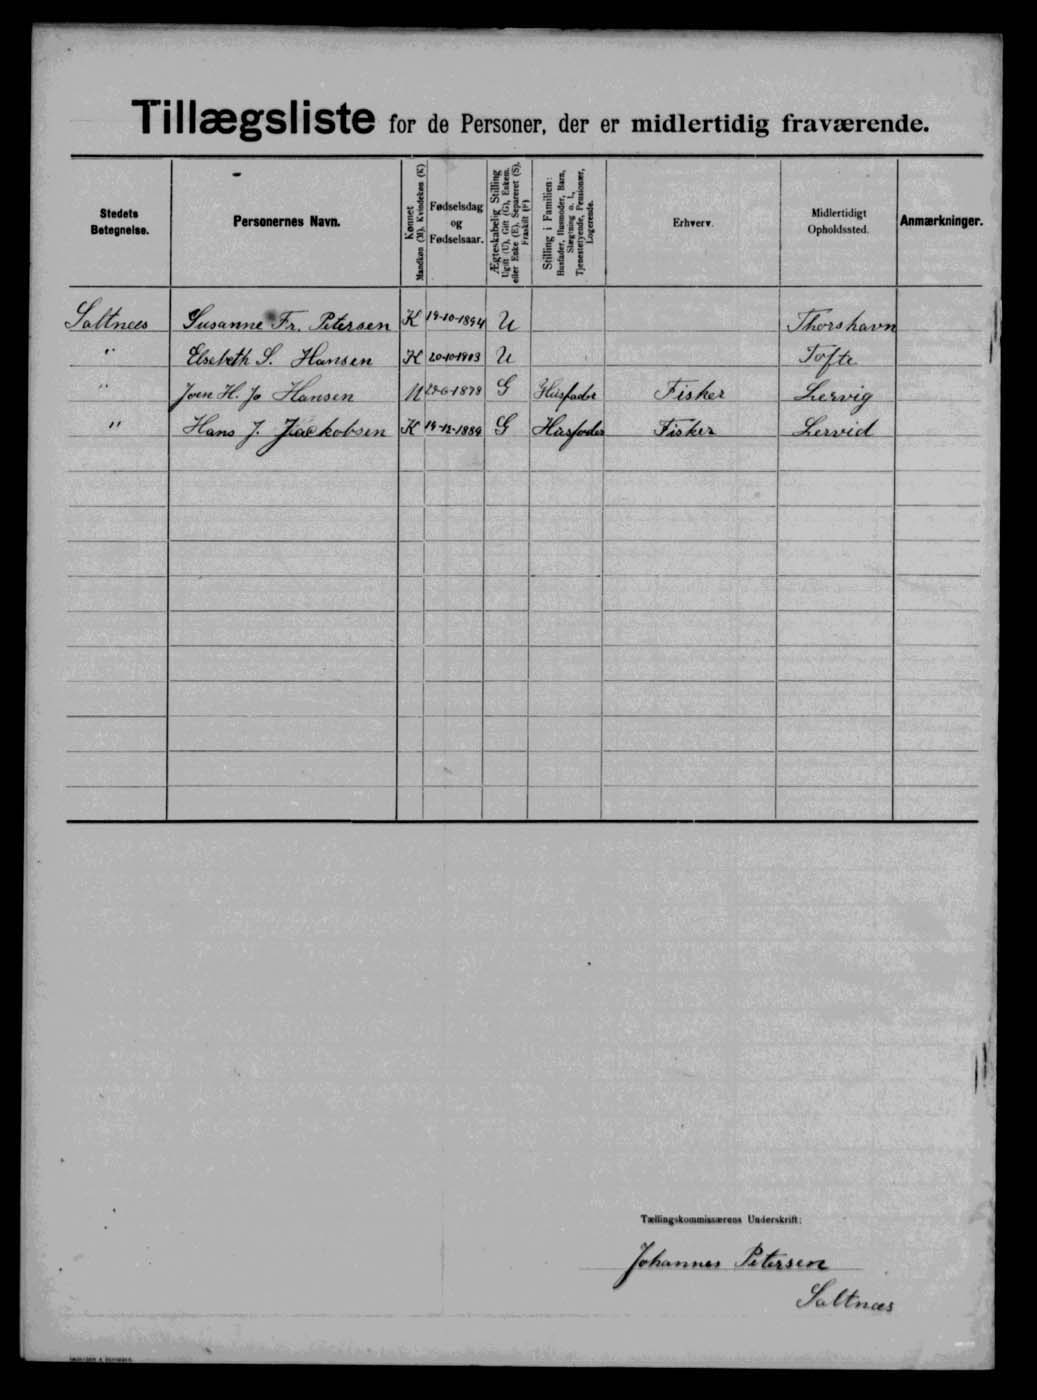 Tillægsliste for de Personer, der er midlertidig fraværende.
Stedets Betegnelse.
Personernes Navn.
Kønnet Mandkøn (M), Kvindekøn (K)
Fødselsdag og Fødselsaar.
Ægteskabelig Stilling Ugift (U), Gift (G), Enkem. eller Enke (E), Separeret (S), Fraskilt (F)
Stilling i Familien: Husfader, Husmoder, Barn, Slægtning o. l., Tjenestetyende, Pensionær, Logerende.
Erhverv.
Midlertidigt Opholdssted.
Anmærkninger.
Saltnæs Susanne Fr. Petersen K 19-10-1894 U Thorshavn
" Elsebeth S. Hansen K 20-10-1903 U Tofte
" Joen H. Jo Hansen M -6-1878 G Husfader Fisker Lervig
" Hans J. Jackobsen K 19-12-1889 G Husfader Fisker Lervid
Tællingskommissærens Underskrift:
Johannes Petersen
Saltnæs